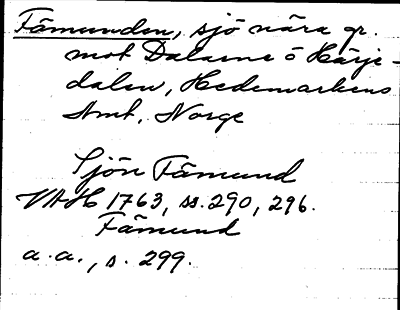 Fämunden, sjö nära gr.
mot Dalarne o Härje-
dalen, Hedemarkens
Amt, Norge
Sjön Fämund
VAH 1763, ss. 290, 296.
Fämund
a.a., s. 299.